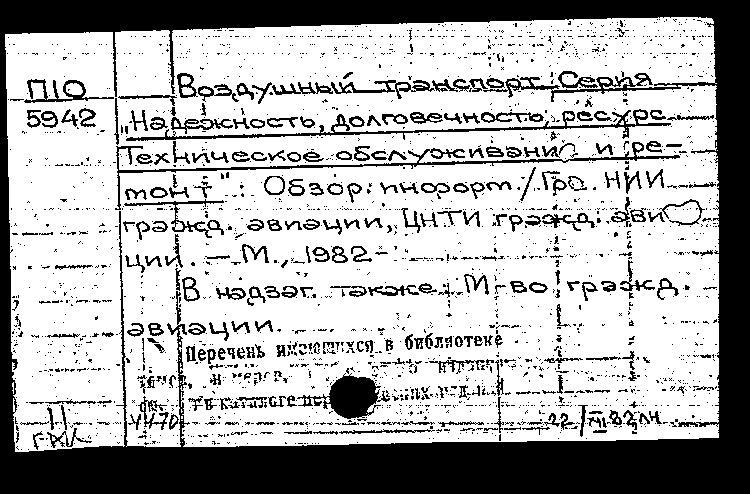 П10 Воздушный транспорт. Серия
5942 "Надежность, долговечность, ресурс
Техническое обслуживани и ре-
монт": Обзор. информ. / Гос. НИИ
гражд. авиации, ЦНТИ гражд. ави
ции. — М., 1982-
В надзаг. также: М-во гражд.
авиации.
Перечень имеющихся в библиотеке
в каталоге
22/XII 82